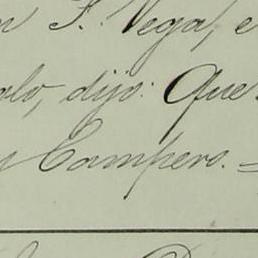 n F. Vega, e
alo, dijo: Que
y Campero. =